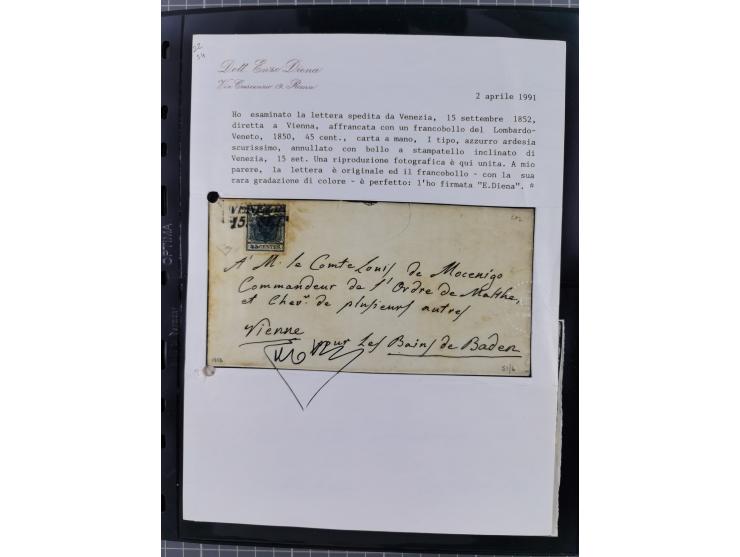 22
54
Dott. Enzo Diena
Via Crescenzio 19, Roma
2 aprile 1991
Ho esaminato la lettera spedita da Venezia, 15 settembre 1852,
diretta a Vienna, affrancata con un francobollo del Lombardo-
Veneto, 1850, 45 cent., carta a mano, I tipo, azzurro ardesia
scurissimo, annullato con bollo a stampatello inclinato di
Venezia, 15 set. Una riproduzione fotografica è qui unita. A mio
parere, la lettera è originale ed il francobollo - con la sua
rara gradazione di colore - è perfetto: l'ho firmata "E.Diena". #
VENEZIA
15.
45 CENTES
A M. le Comte Louis de Mocenigo
Commandeur de l'Ordre de Malthe,
et Chevr. de plusieurs autres
Vienne
pour Les Bains de Baden
OPTIMA